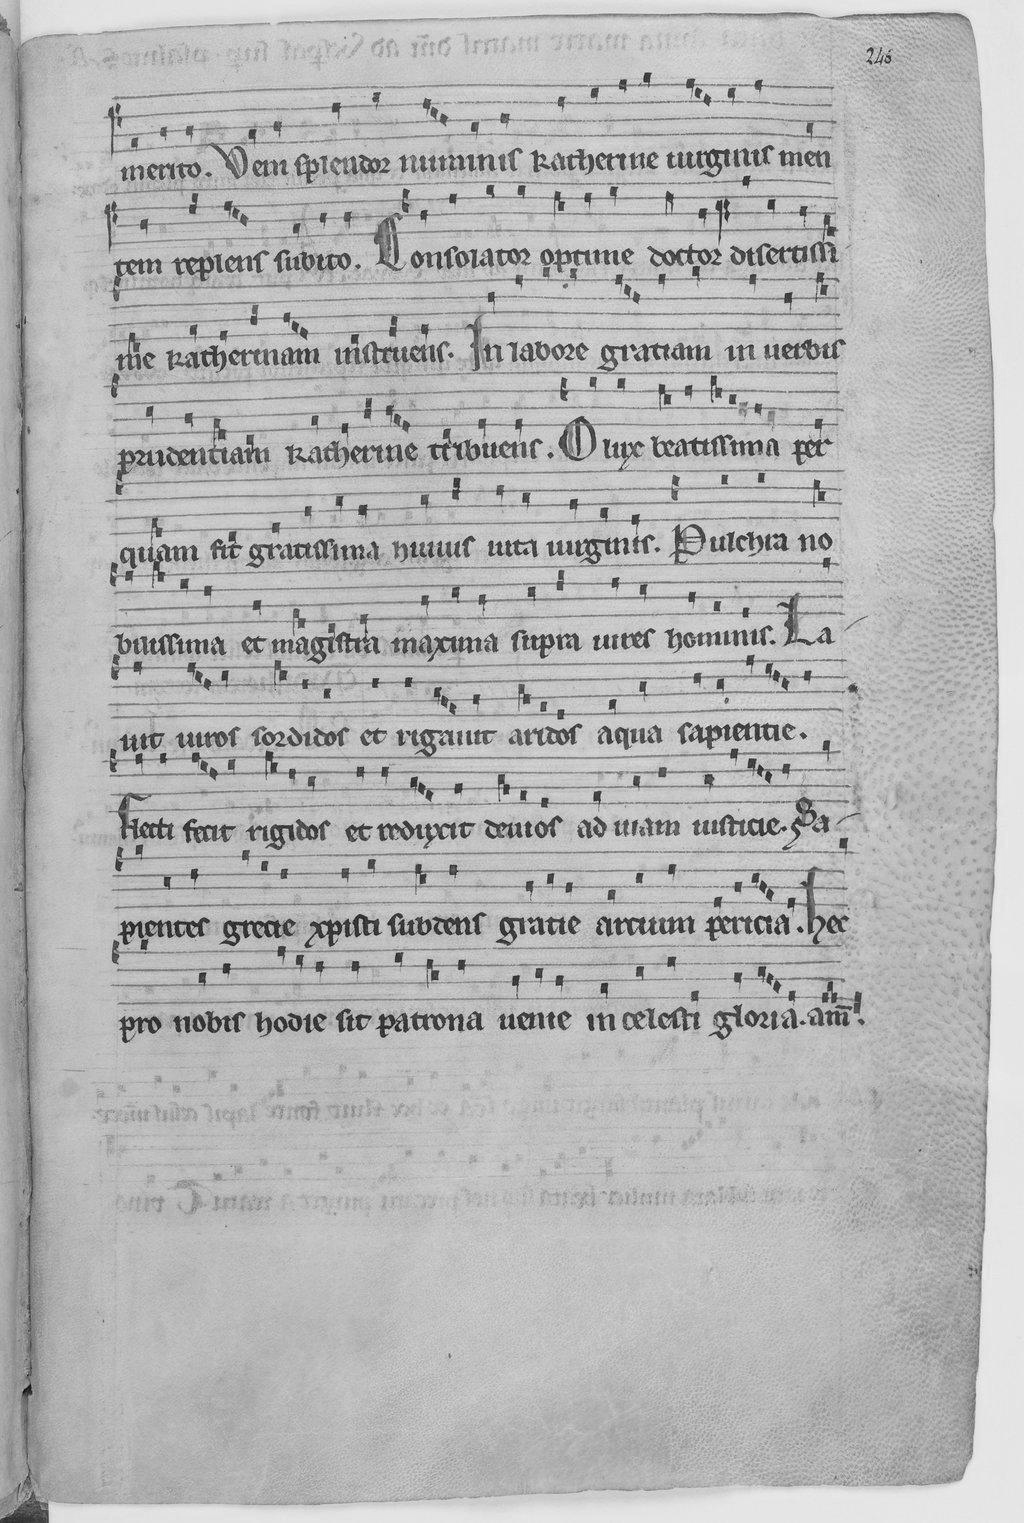 248
merito. Veni splendor numinis katherine uirginis men
tem repiens subito. Consolator optime doctor disertissi
me katherinam instruens. In labore gratiam in uerbis
prudentiam katherine tribuens. O lux beatissima per
quam fit gratissima huius uita uirginis. Pulchra no
bilissima et magistra maxima supra uires hominis. La
uit uiros sordidos et rigauit aridos aqua sapientie.
Flecti fecit rigidos et reduxit deuios ad uiam iusticie. Sa
pientes grecie xpisti subdens gratie artium pericia. Hec
pro nobis hodie sit patrona uenie in celesti gloria. am̅.